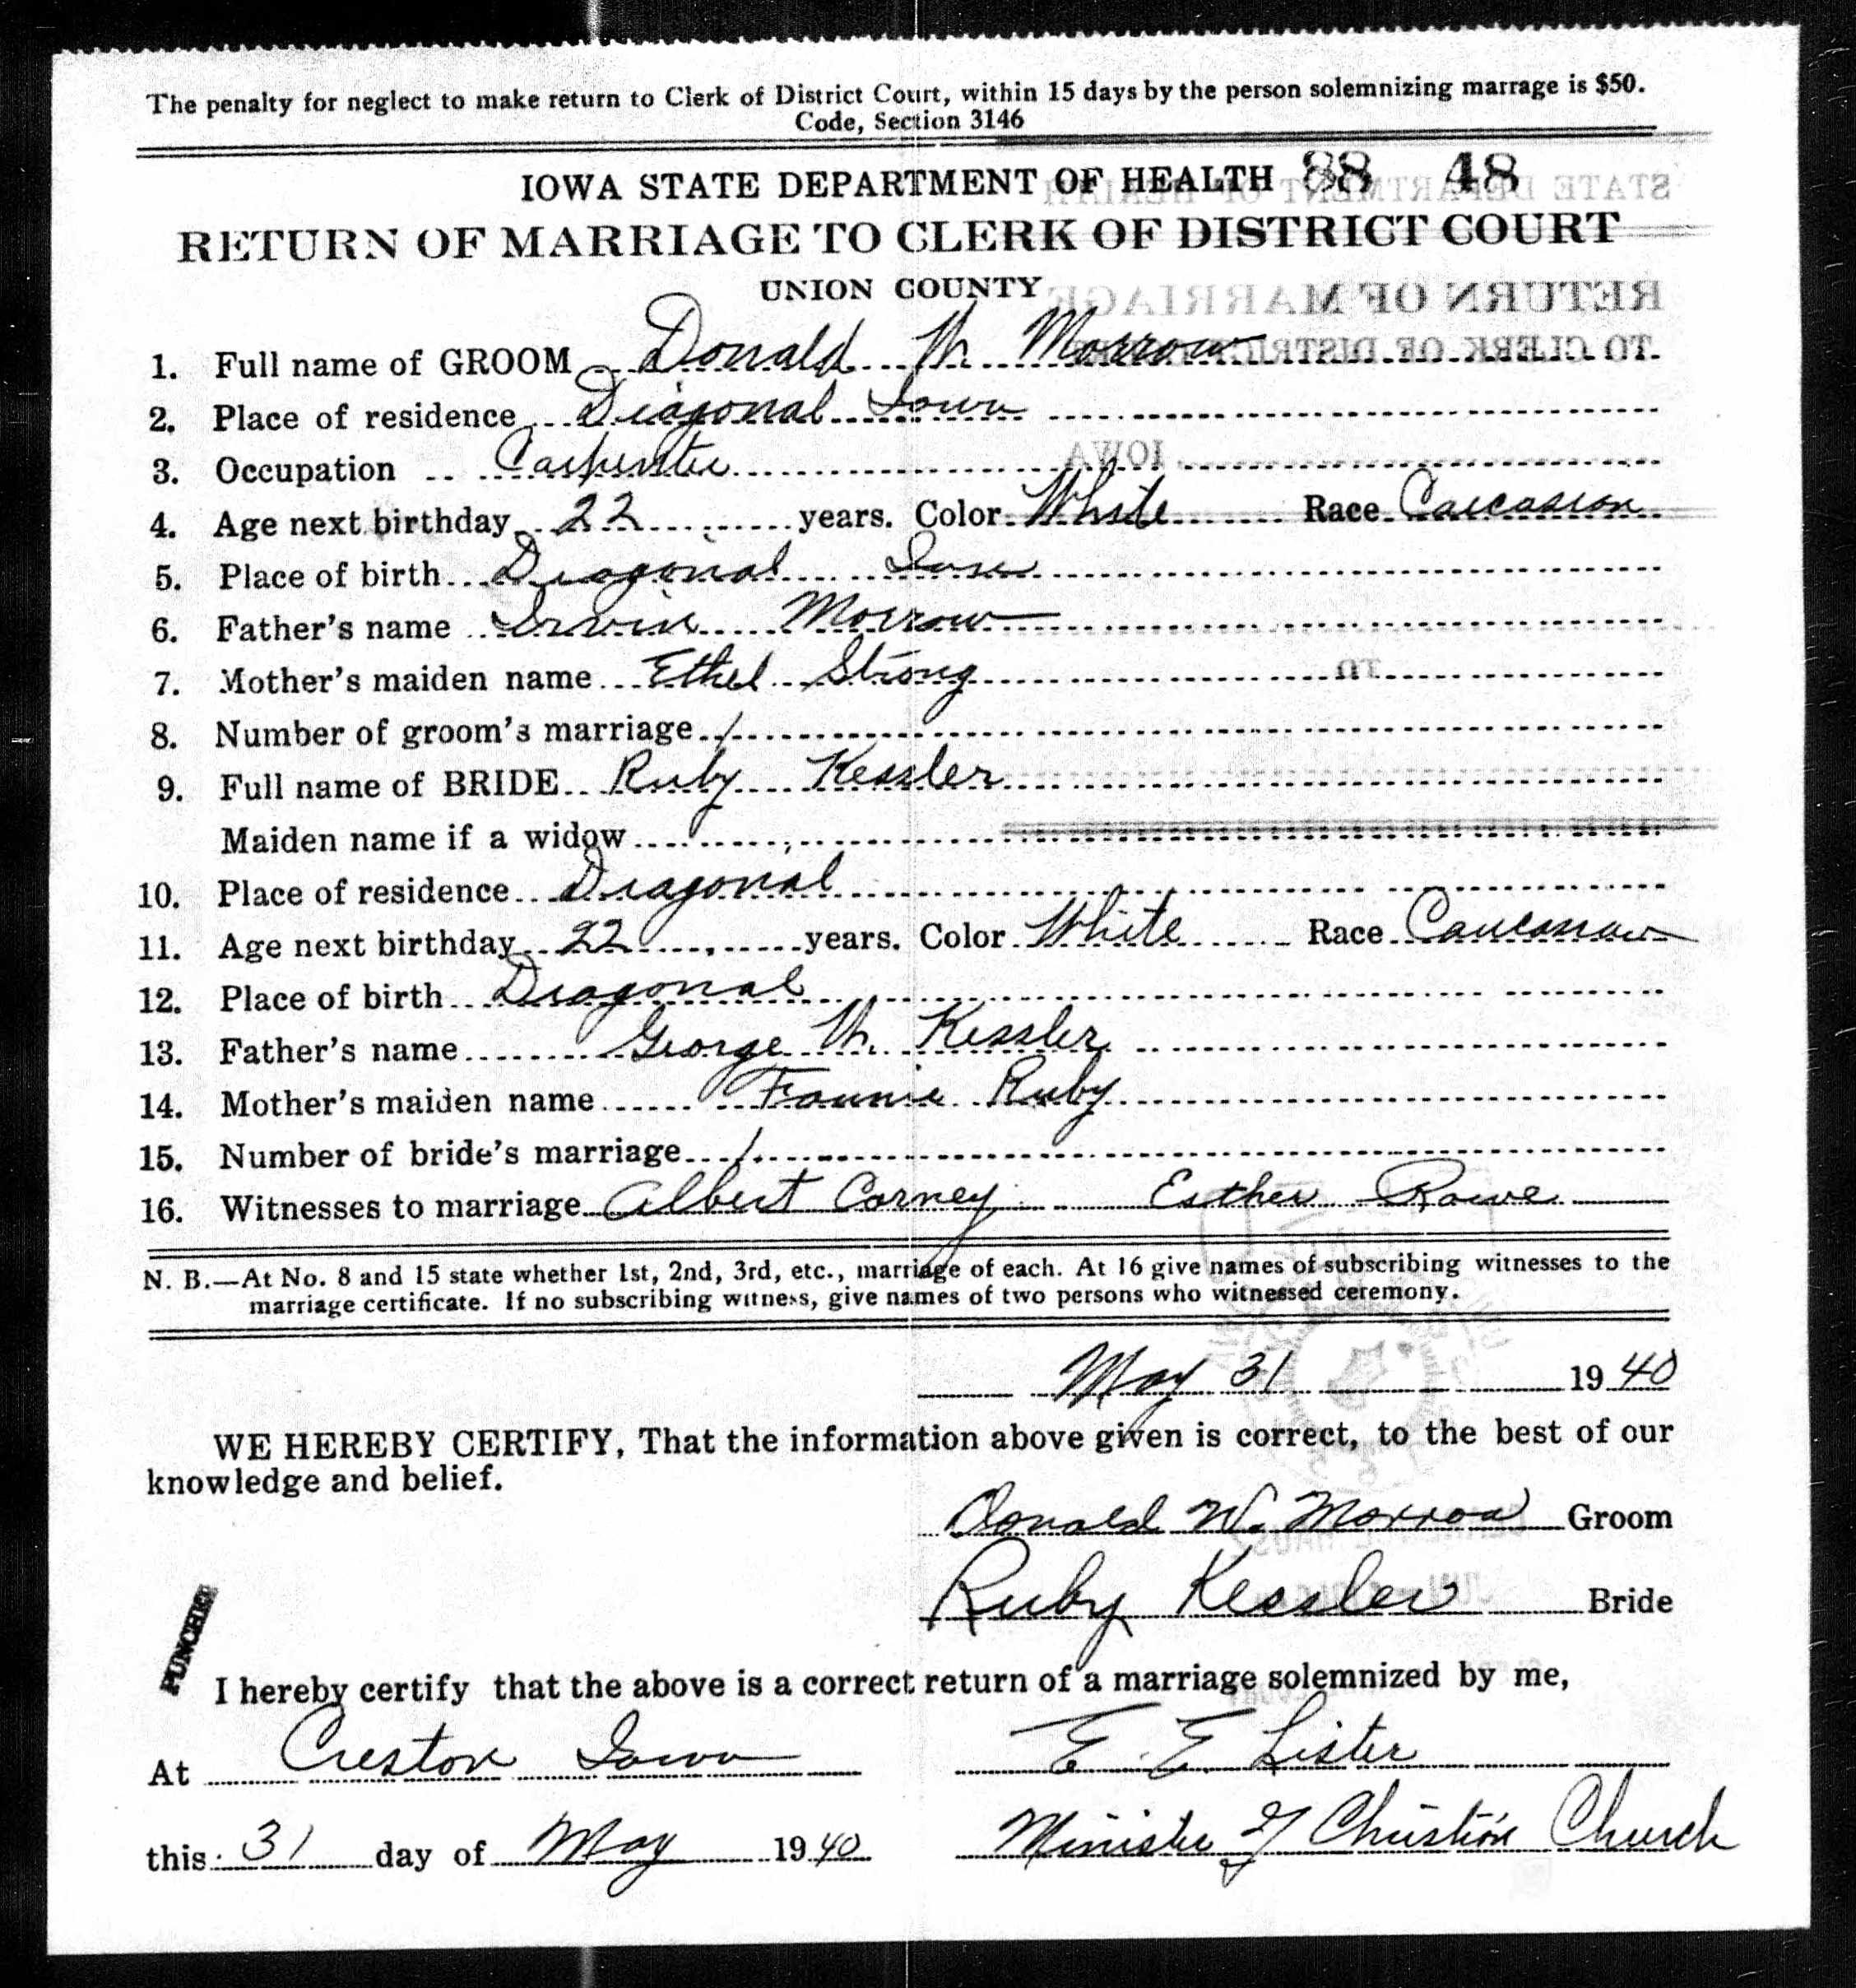 The penalty for neglect to make return to Clerk of District Court, within 15 days by the person solemnizing marrage is $50.
Code, Section 3146
IOWA STATE DEPARTMENT OF HEALTH 88 48
RETURN OF MARRIAGE TO CLERK OF DISTRICT COURT
UNION COUNTY
1. Full name of GROOM Donald W Morrow
2. Place of residence Diagonal Iowa
3. Occupation Carpenter
4. Age next birthday 22 years. Color White Race Caucasion
5. Place of birth Diagonal Iowa
6. Father's name Irwin Morrow
7. Mother's maiden name Ethel Strong
8. Number of groom's marriage 1
9. Full name of BRIDE Ruby Kessler
Maiden name if a widow
10. Place of residence Diagonal
11. Age next birthday 22 years. Color White Race Caucasian
12. Place of birth Diagonal
13. Father's name George W. Kessler
14. Mother's maiden name Fannie Ruby
15. Number of bride's marriage 1
16. Witnesses to marriage Albert Carney Esther Rowe
N. B.—At No. 8 and 15 state whether 1st, 2nd, 3rd, etc., marriage of each. At 16 give names of subscribing witnesses to the
marriage certificate. If no subscribing witness, give names of two persons who witnessed ceremony.
May 31 1940
WE HEREBY CERTIFY, That the information above given is correct, to the best of our
knowledge and belief.
Donald W. Morrow Groom
Ruby Kessler Bride
PUNCHED
I hereby certify that the above is a correct return of a marriage solemnized by me,
At Creston Iowa E. E. Lister
this 31 day of May 1940 Minister of Christian Church